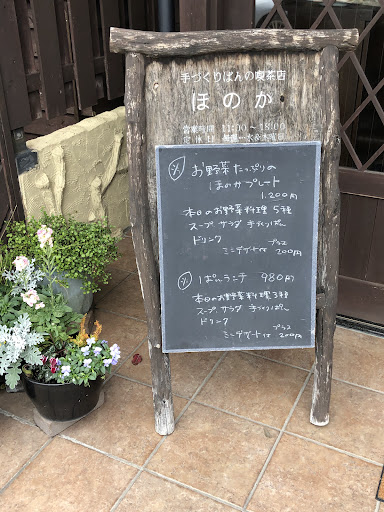 手づくりぱんの喫茶店
ほのか
営業時間 11:00~15:00
定休日 水&木曜日
お野菜たっぷりの
ほのかプレート
1,200円
本日のお野菜料理 5種
スープ サラダ 手づくりぱん
ドリンク
ミニデザート付 プラス200円
ぱんランチ 980円
本日のお野菜料理 3種
スープ サラダ 手づくりぱん
ドリンク
ミニデザート付 プラス200円